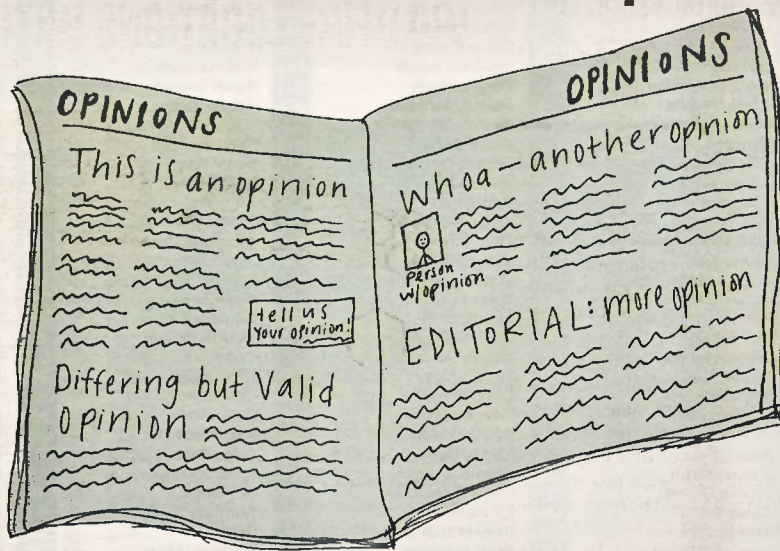 OPINIONS
This is an opinion
tell us
your opinion!
Differing but Valid
Opinion
OPINIONS
Whoa — another opinion
person
w/opinion
EDITORIAL: more opinion